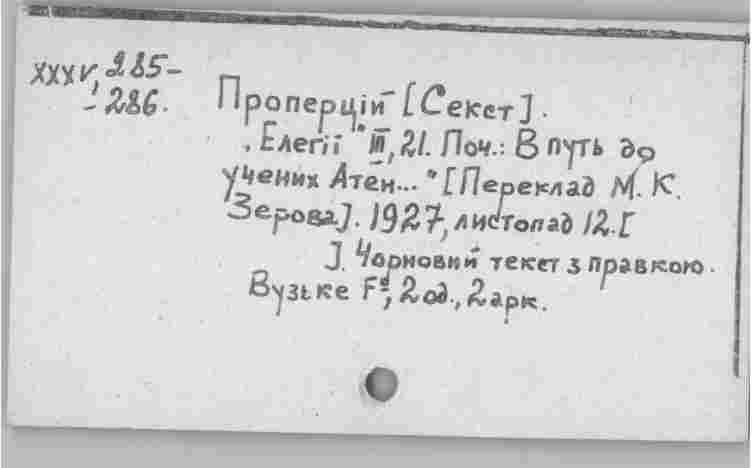 XXXV, 285-
-286.
Проперцій [Секст].
„Елегії" III, 21. Поч.: В путь до
учених Атен..." [Переклад М. К.
Зерова]. 1927, листопад 12. [
]. Чорновий текст з правкою.
Вузьке F°, 2 од., 2 арк.